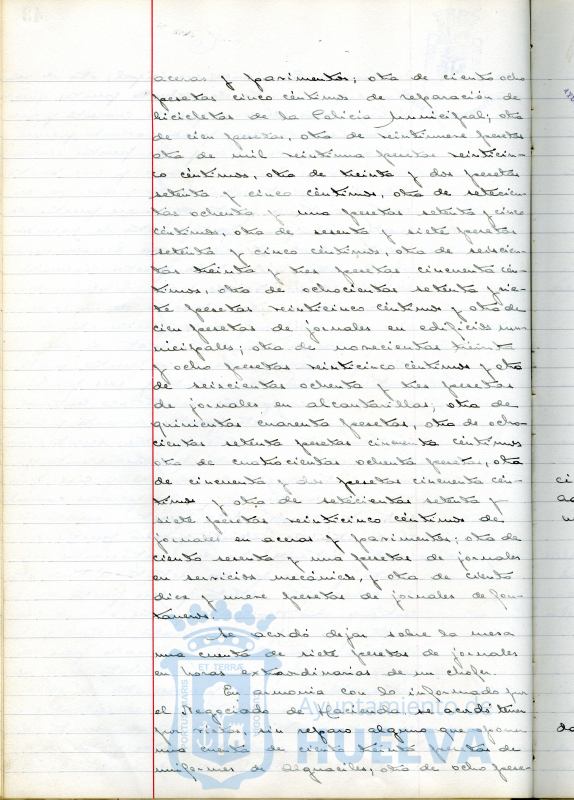 aceras y pavimentos; otra de ciento ocho
pesetas cinco céntimos de reparación de
bicicletas de la Policía Municipal; otra
de cien pesetas, otra de veintinueve pesetas
otra de mil veintiuna pesetas veinticin-
co céntimos, otra de treinta y dos pesetas
setenta y cinco céntimos, otra de setecien-
tas ochenta y una pesetas setenta y cinco
céntimos, otra de sesenta y siete pesetas
setenta y cinco céntimos, otra de seiscien-
tas treinta y tres pesetas cincuenta cén-
timos, otra de ochocientas setenta y sie-
te pesetas veinticinco céntimos y otra de
cien pesetas de jornales en edificios mu-
nicipales; otra de novecientas treinta
y ocho pesetas veinticinco céntimos y otra
de seiscientas ochenta y tres pesetas
de jornales en alcantarillas; otra de
quinientas cuarenta pesetas, otra de ocho-
cientas setenta pesetas cincuenta céntimos
otra de cuatrocientas ochenta pesetas, otra
de cincuenta y dos pesetas cincuenta cén-
timos y otra de setecientas setenta y
siete pesetas veinticinco céntimos de
jornales en aceras y pavimentos; otra de
ciento sesenta y una pesetas de jornales
en servicios mecánicos, y otra de ciento
diez y nueve pesetas de jornales de fon-
taneros.
Se acordó dejar sobre la mesa
una cuenta de siete pesetas de jornales
en horas extraordinarias de un chofer.
En armonía con lo informado por
el Negociado de Hacienda se acordó tener
por vistas, sin reparo alguno que oponer
una cuenta de ciento treinta pesetas de
uniformes de Alguaciles, otra de ocho pese-
Ayuntamiento de
HUELVA
ET TERRÆ
PORTUS MARIS
CUSTODIA